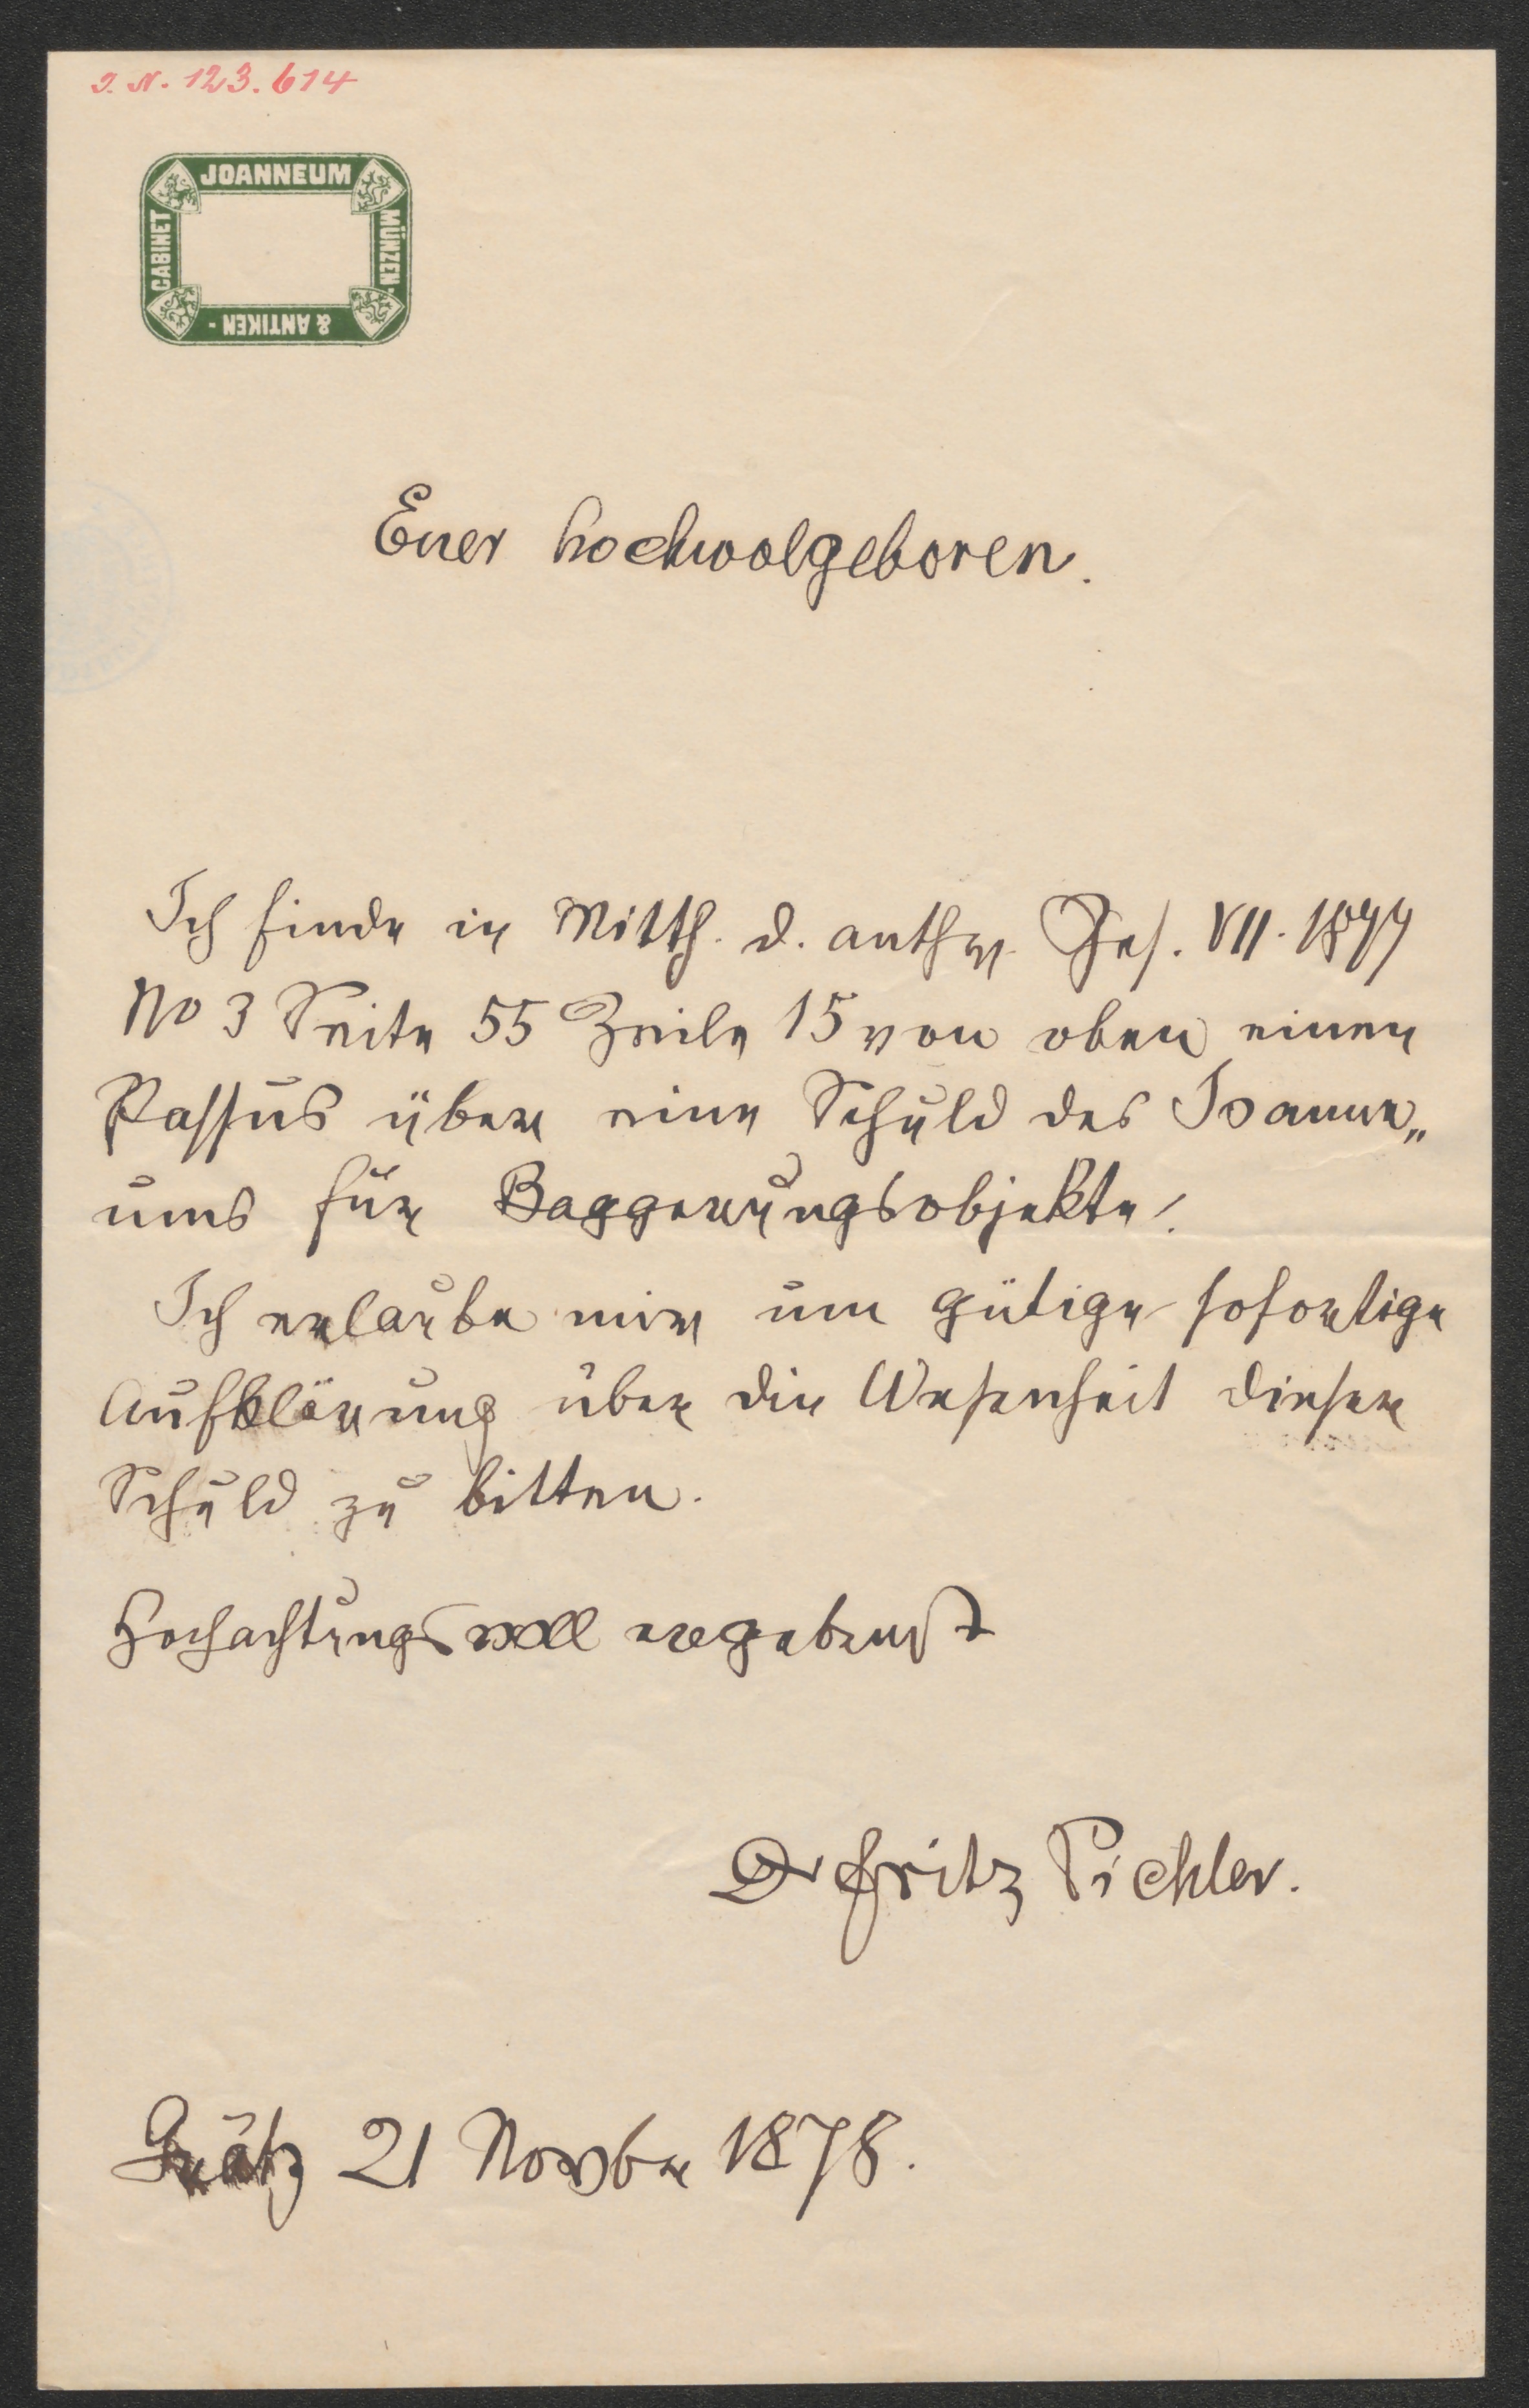 I. N. 123.614
JOANNEUM
MÜNZEN-
& ANTIKEN-
CABINET
Euer hochwolgeboren.
Ich finde in Mitth. d. anthr. Ges. VII. 1877
No 3 Seite 55 Zeile 15 von oben einen
Passus über eine Schuld des Joanne„
ums für Baggerungsobjekte!
Ich erlaube mir um gütige sofortige
Aufklärung über die Wesenheit dieser
Schuld zu bitten.
Hochachtungsvoll ergebenst
Dr Fritz Pichler.
Grätz 21 Novber 1878.